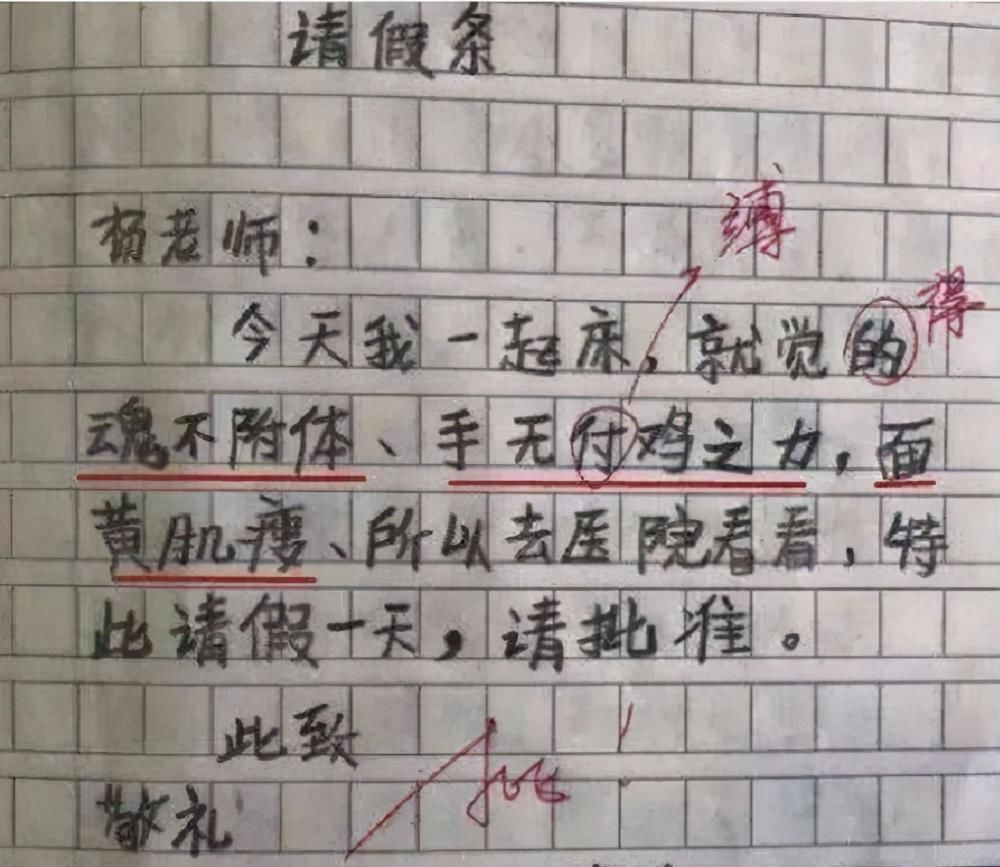 请假条
缚
杨老师：
得
今天我一起床，就觉的
魂不附体、手无付鸡之力，面
黄肌瘦、所以去医院看看，特
此请假一天，请批准。
此致
批
敬礼